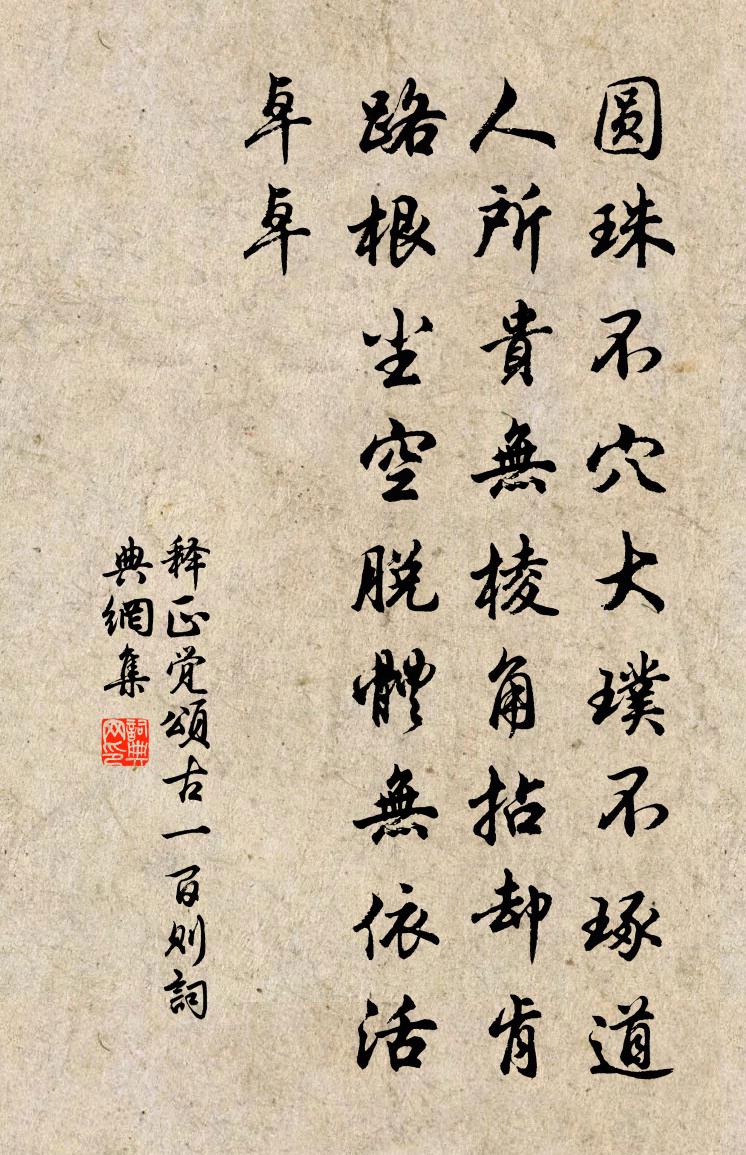 圆珠不穴大璞不琢道
人所貴無棱角拈却肯
路根尘空脱體無依活
卓卓
释正觉頌古一百则詞
典網集
詞典网印